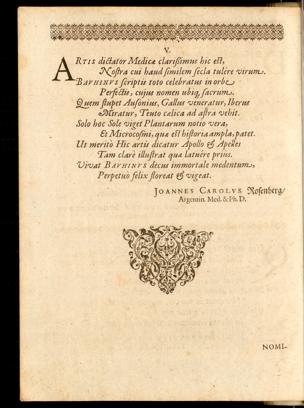 V.
ARTIS dictator Medicæ clarissimus hic est,
Nostra cui haud similem secla tulere virum.
BAVHINVS scriptis toto celebratus in orbe
Perfectis, cujus nomen ubiq; sacrum.
Quem stupet Ausonius, Gallus veneratur, Iberus
Miratur, Teuto celica ad astra vehit.
Solo hoc Sole viget Plantarum notio vera,
Et Microcosmi, qua est historia ampla, patet.
Ut meritò Hic artis dicatur Apollo & Apelles
Tam clarè illustrat qua latuêre prius.
Vivat BAVHINVS decus immortale medentum,
Perpetuò felix floreat & vigeat.
JOANNES CAROLVS Rosenberg/
Argentin. Med. & Ph. D.
NOMI-